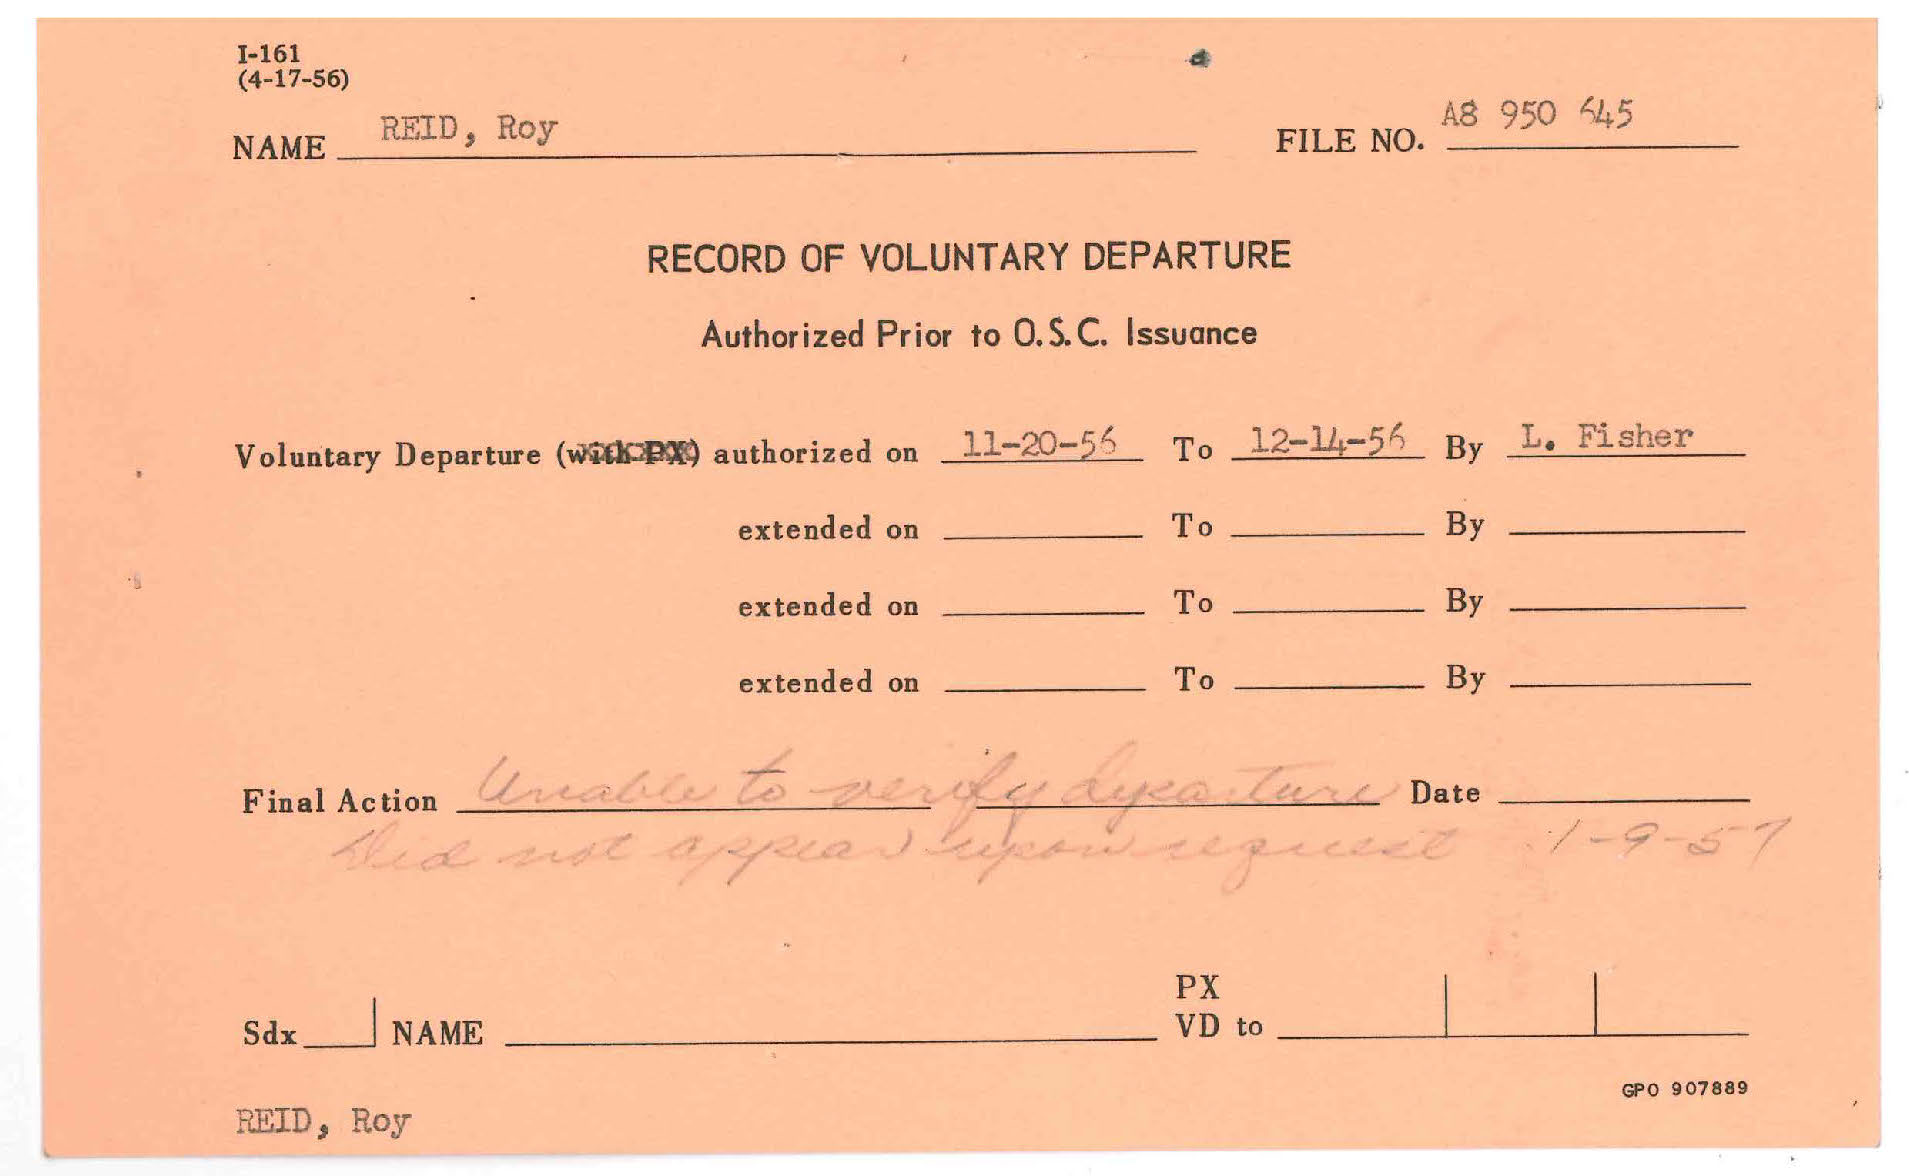 I-161
(4-17-56)
NAME REID, Roy FILE NO. A8 950 645
RECORD OF VOLUNTARY DEPARTURE
Authorized Prior to O.S.C. Issuance
Voluntary Departure (with PX) authorized on 11-20-56 To 12-14-56 By L. Fisher
extended on To By
extended on To By
extended on To By
Final Action Unable to verify departure Date
Did not appear upon request 1-9-57
PX
Sdx NAME VD to
GPO 907889
REID, Roy